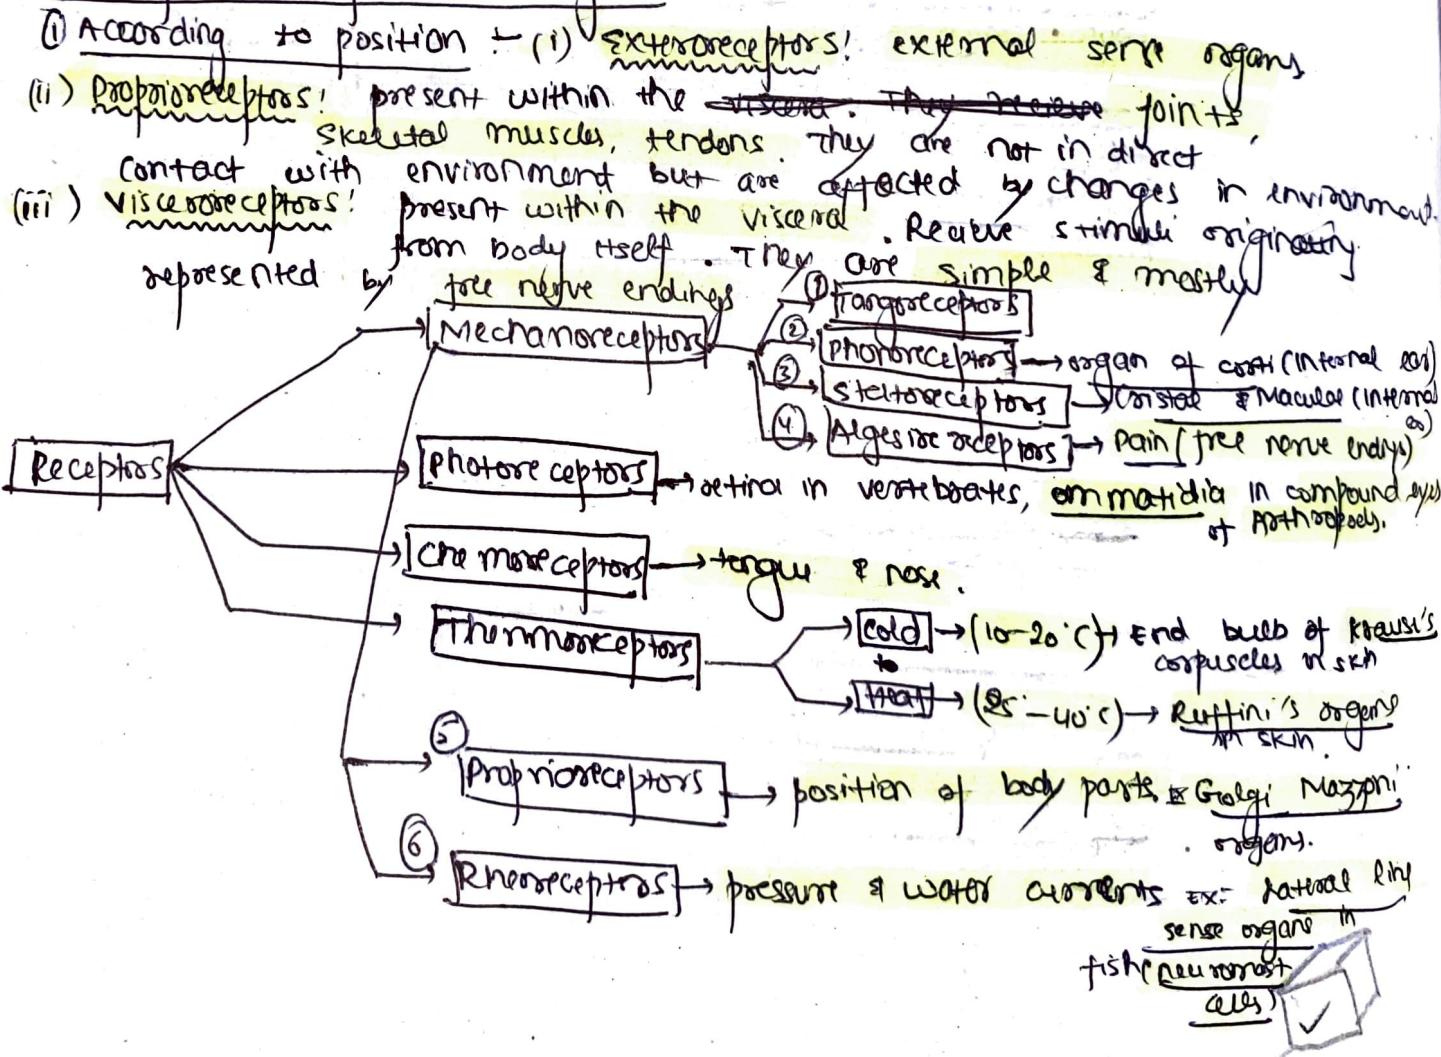 ① According to position :- (i) Exteroreceptors! external sense organs
(ii) Proprioreceptors! present within the viscera. They recieve joints,
skeletal muscles, tendons. They are not in direct
contact with environment but are affected by changes in environment.
(iii) Visceroreceptors! present within the visceral. Recieve stimuli originating
from body itself. They are simple & mostly
represented by free nerve endings
Mechanoreceptors
① Tangoreceptors
② Phonoreceptors → organ of corti (internal ear)
③ Statoreceptors → Cristae & Maculae (internal ear)
④ Algesireceptors → Pain (free nerve endings)
Receptors
Photoreceptors → retina in vertebrates, ommatidia in compound eyes
of Arthropods.
Chemoreceptors → tongue & nose.
Thermoreceptors
Cold → (10-20°C) → End bulb of Krausi's
corpuscles in skin
to
Heat → (25°-40°C) → Ruffini's organs
in skin.
⑤ Proprioreceptors → position of body parts. Ex Golgi Mazzoni
organs.
⑥ Rheoreceptors → pressure & water currents Ex:- Lateral line
sense organs in
fish (neuromast
cells)